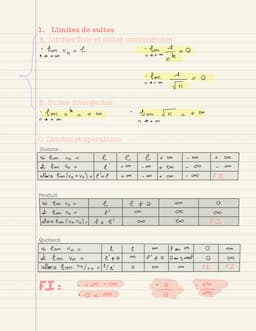 1. Limites de suites
A. Limites finie et suites convergentes
• lim vn = l
n → +∞
• lim 1/n^k = 0
n → +∞
• lim 1/√n = 0
n → +∞
B. Suites divergentes
• lim n^k = +∞
n → +∞
• lim √n = +∞
n → +∞
C. Limites et opérations
Somme :
si lim un = l l l +∞ -∞ +∞
et lim vn = l' +∞ -∞ +∞ -∞ -∞
alors lim (un + vn) = l' + l +∞ -∞ +∞ -∞ F.I
Produit
si lim un = l l ≠ 0 ∞ 0
et lim vn = l' ∞ ∞ ∞
alors lim (un vn) = l × l' ∞ ∞ F.I
Quotient
si lim un =
et lim vn =
alors lim un/vn = l/l' 0 ∞ ∞ F.I F.I
F.I :
• +∞ -∞
• 0 × ∞
• 0/0
• ∞/∞